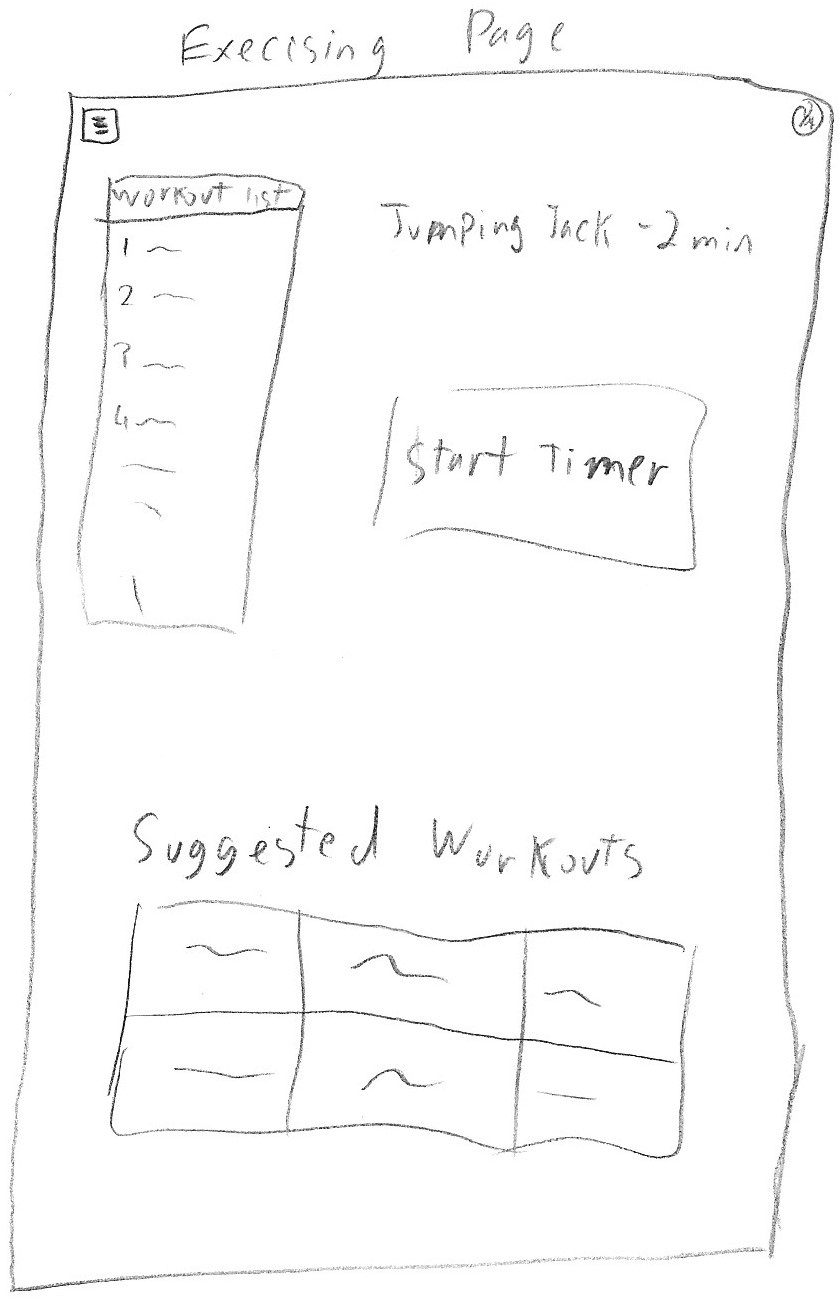 Execising Page
Workout list
Jumping Jack - 2 min
1
2
3
4
Start Timer
Suggested Workouts